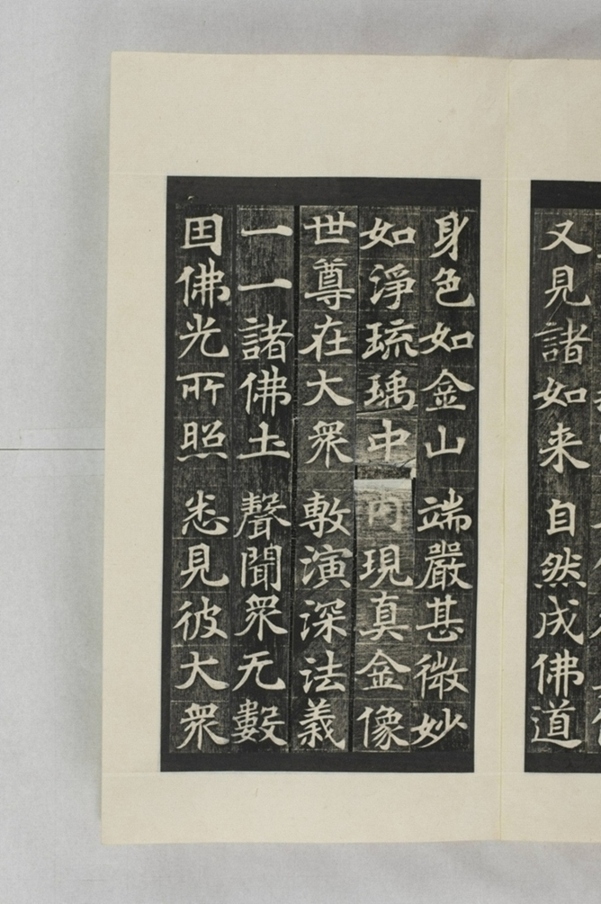 又見諸如来 自然成佛道
身色如金山 端嚴甚微妙
如淨琉璃中 内現真金像
世尊在大衆 敷演深法義
一一諸佛土 聲聞衆无數
因佛光所照 悉見彼大衆